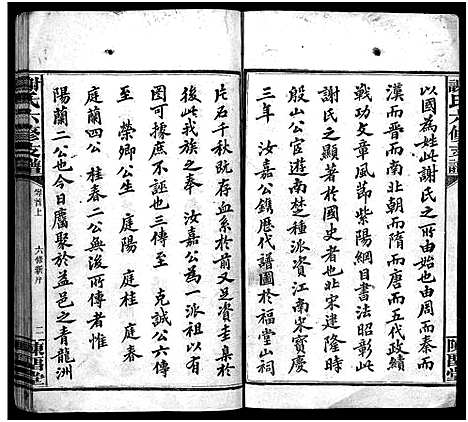 謝氏六修支譜
以國為姓此謝氏之所由始也由周而秦而
漢而晉而南北朝而隋而唐而五代政績
戰功文章風節紫陽綱目書法昭彰此
謝氏之顯著於國史者也北宋建隆時
殷山公宦遊南楚種派資江南宋寶慶
三年 汝嘉公鐫歷代譜圖於福堂山祠
片石千秋既存血系於前又足資圭臬於
後此我族之奉 汝嘉公為一派祖以有
圖可據庶不誣也三傳至 克誠公六傳
至 榮卿公生 庭陽 庭桂 庭慶
庭蘭四公 桂春二公無後所傳者惟
陽蘭二公也今日麕聚於益邑之青龍洲
謝氏六修支譜
卷首上
六修新序
二